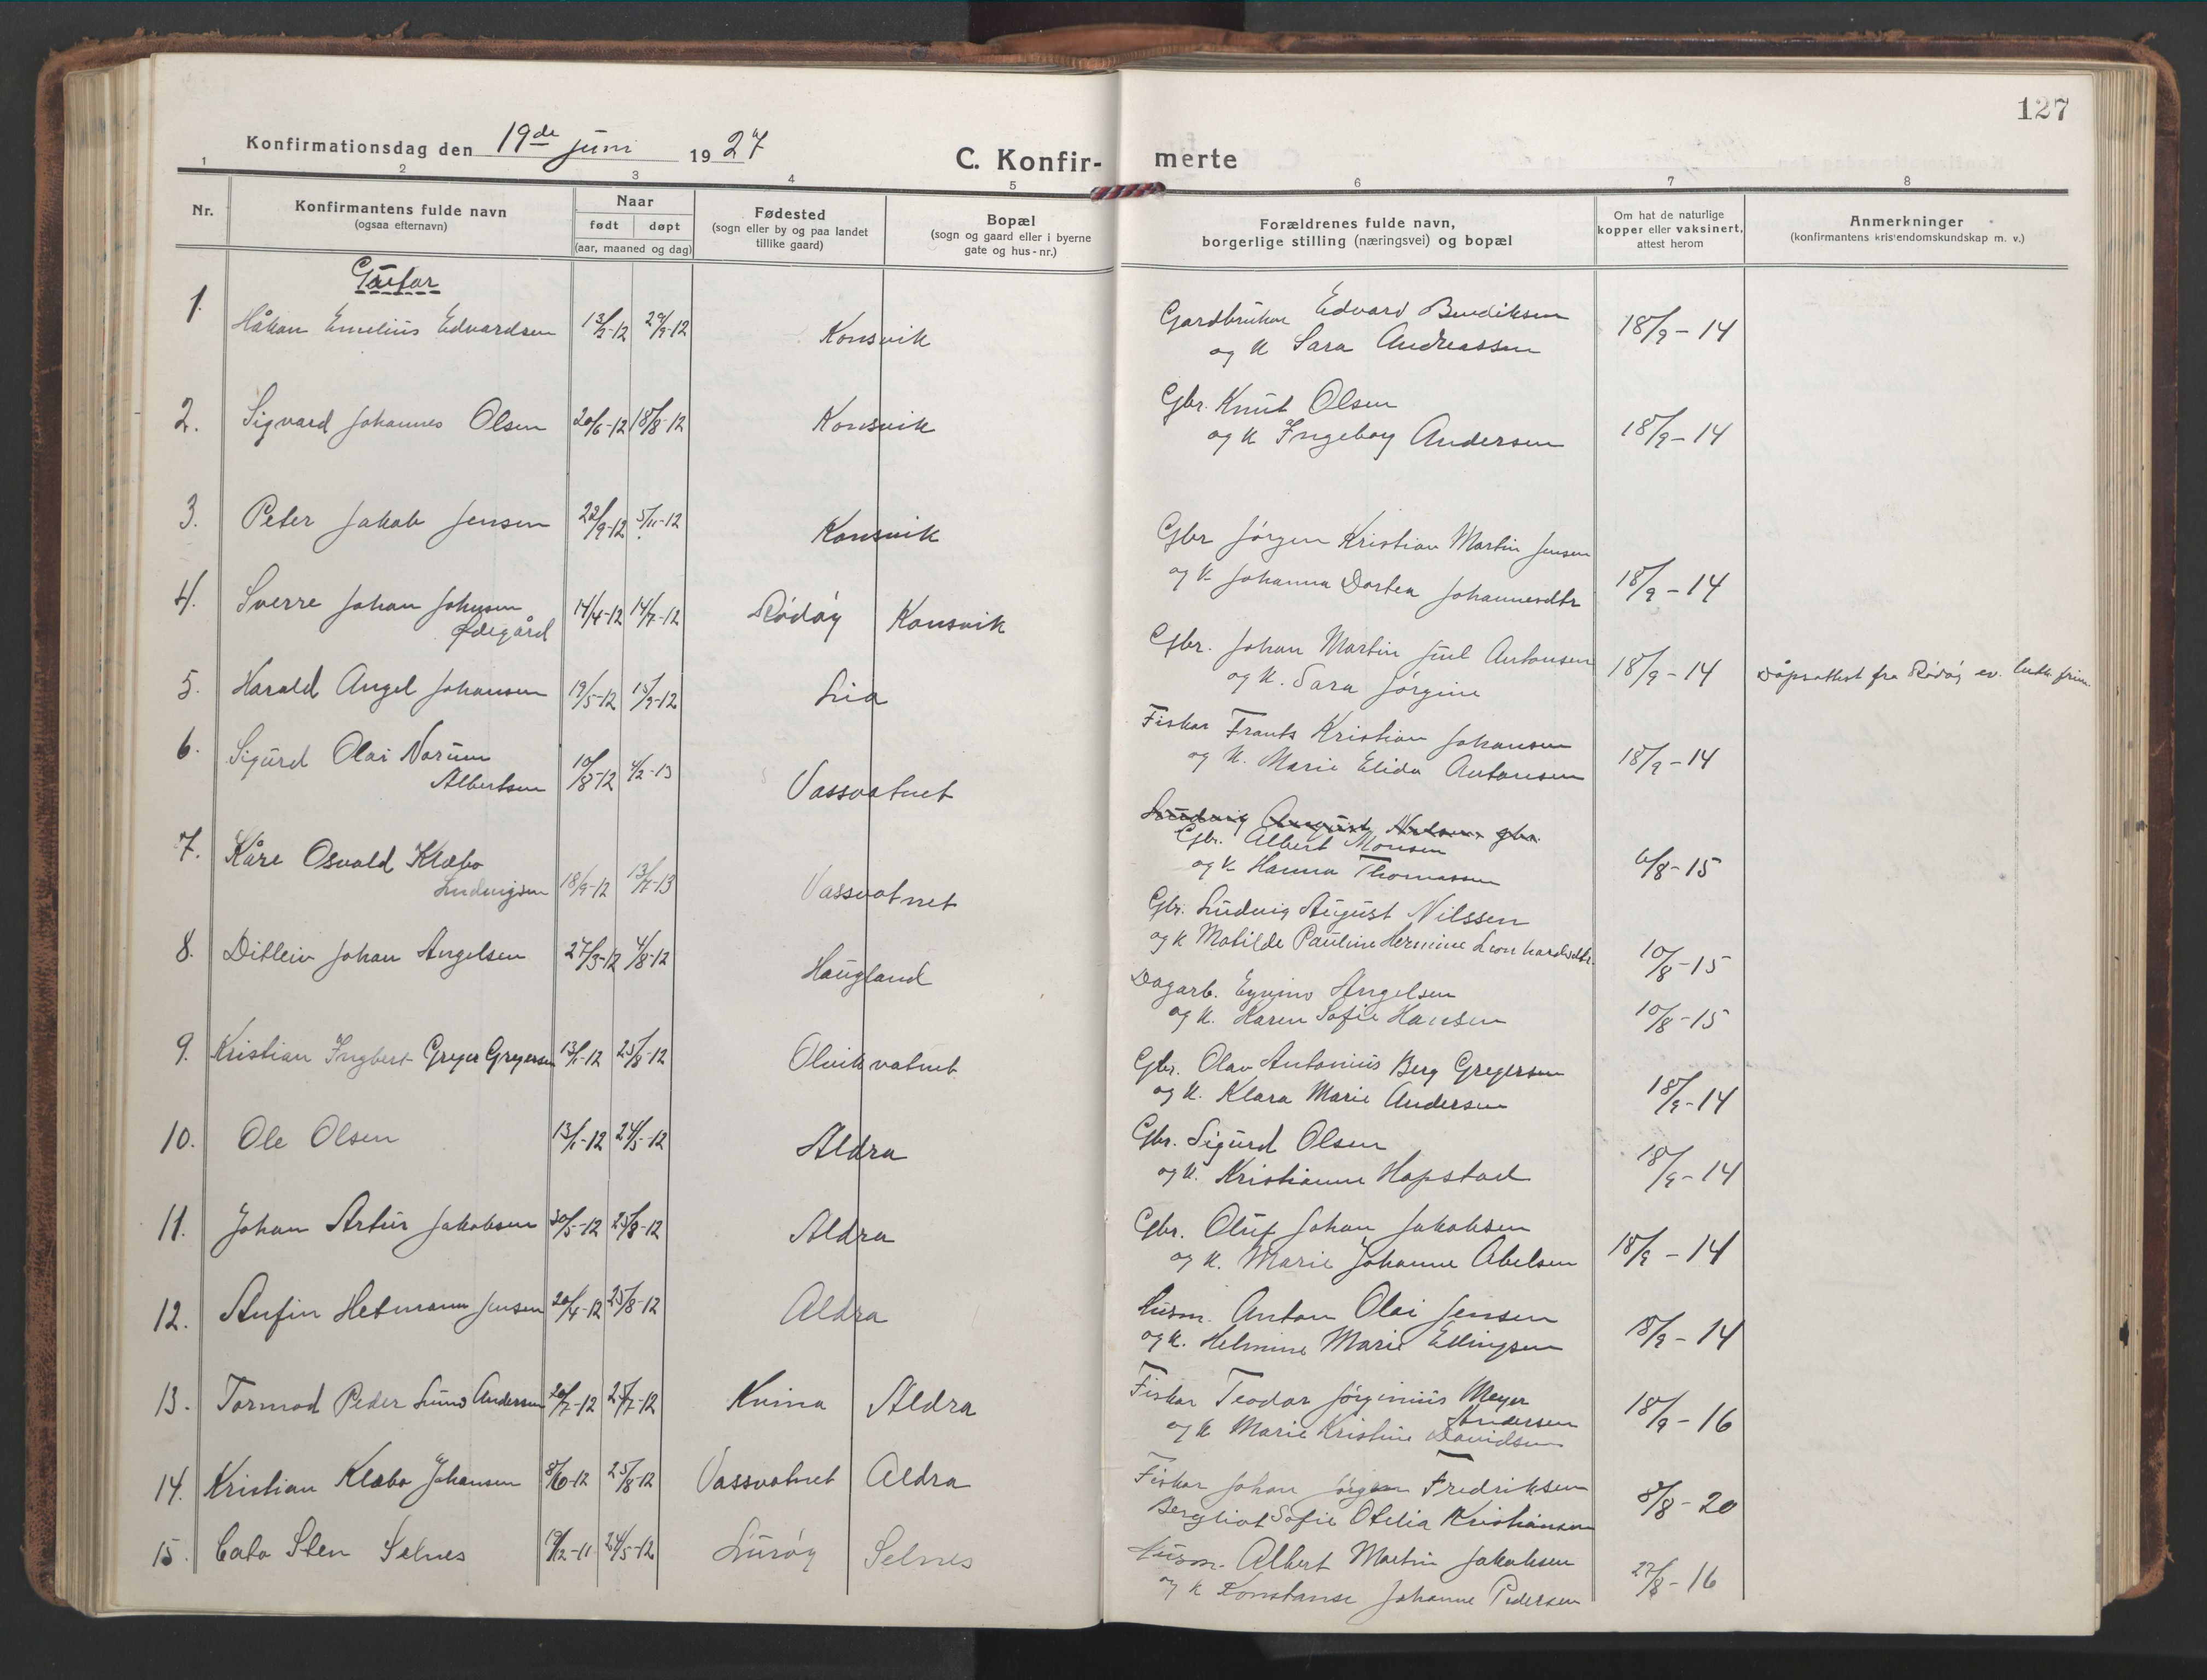 127
Konfirmationsdag den 19de juni 1927
C. Konfirmerte
1 2 3 4 5 6 7 8
Nr.
Konfirmantens fulde navn
(ogsaa efternavn)
Naar
født døpt
(aar, maaned og dag)
Fødested
(sogn eller by og paa landet
tillike gaard)
Bopæl
(sogn og gaard eller i byerne
gate og hus-nr.)
Forældrenes fulde navn,
borgerlige stilling (næringsvei) og bopæl
Om hat de naturlige
kopper eller vaksinert,
attest herom
Anmerkninger
(konfirmantens kristendomskundskap m. v.)
Gutar
1. Håkon Emelius Edvardsen -12 -12 Konsvik
Gardbrukar Edvard Bendiksen
og k Sara Andreassen
18/9-14
2. Sigvard Johannes Olsen 20/6-12 18/8-12 Konsvik
Gbr. Knut Olsen
og k Ingeborg Andersen
18/9-14
3. Peter Jakob Jensen 22/9-12 5/11-12 Konsvik
Gbr Jørgen Kristian Martin Jensen
og k Johanna Dortea Johannesdtr
18/9-14
4. Sverre Johan Johnsen
Ødegård
14/4-12 14/7-12 Rødøy Konsvik
Gbr. Johan Martin Juul Antonsen
og k. Sara Jørgine
18/9-14
Dåpsattest fra Rødøy ev. luth.
5. Harald Angel Johansen 19/5-12 15/9-12 Lia
Fiskar Frants Kristian Johansen
og k. Marie Elida Antonsen
18/9-14
6. Sigurd Olai Norum
Albertsen
10/8-12 4/2-13 Vassvatnet
Ludvig August Nilsen gbr.
Gbr. Albert Monsen
og k Hanna Thomassen
6/8-15
7. Kåre Osvald Klæbo
Ludvigsen
18/9-12 13/7-13 Vassvatnet
Gbr. Ludvig August Nilssen
og k Matilde Pauline Hermine Leonhardsdtr.
10/8-15
8. Ditlein Johan Angelsen 27/3-12 4/8-12 Haugland
Dagarb. Angelsen
og k. Karen Sofie Hansen
10/8-15
9. Kristian Ingbert Greger Gregersen 13/1-12 25/8-12 Olvikvatnet
Gbr. Olav Antonius Berg Gregersen
og k. Klara Marie Andersen
18/9-14
10. Ole Olsen 13/1-12 24/5-12 Aldra
Gbr. Sigurd Olsen
og k. Kristianne Hopstad
18/9-14
11. Johan Artur Jakobsen 30/5-12 25/8-12 Aldra
Gbr. Oluf Johan Jakobsen
og k. Marie Johanne Abelsen
18/9-14
12. Anfin Hetmann Jensen 20/4-12 25/8-12 Aldra
Husm. Anton Olai Jensen
og k. Helmine Marie Ellingsen
18/9-14
13. Tormod Peder Lund Andersen 20/7-12 -12 Kvina Aldra
Fiskar Teodor Jørginius Meyer
Andersen
og k Marie Kristine Davidsen
18/9-16
14. Kristian Klæbo Johansen 8/6-12 25/8-12 Vassvatnet Aldra
Fiskar Johan Jørgen Fredriksen
Bergliot Sofie Otelia Kristiansen
8/8-20
15. Cato Sten Selnes 19/12-11 24/5-12 Lurøy Selnes
Husm. Albert Martin Jakobsen
og k Konstanse Johanne Pedersen
27/8-16